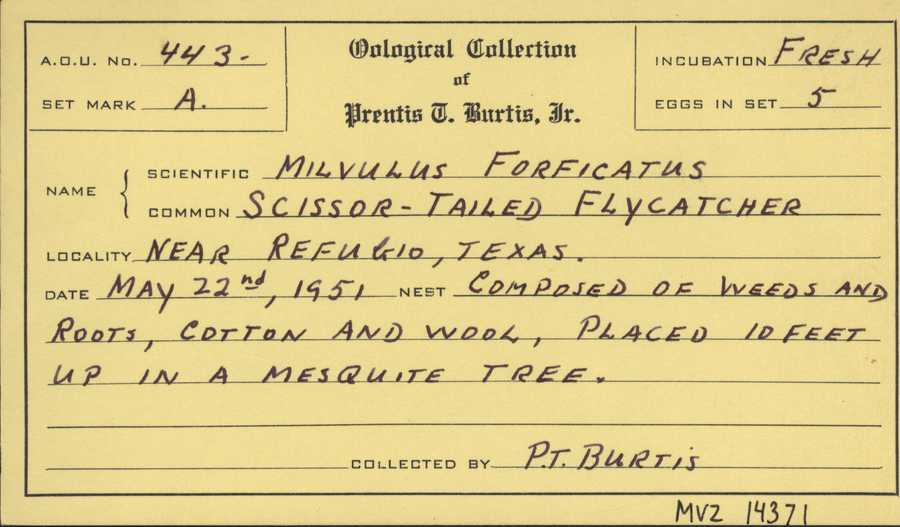 A.O.U. No. 443-
SET MARK A.
Oological Collection
of
Prentis T. Burtis, Jr.
INCUBATION FRESH
EGGS IN SET 5
NAME
SCIENTIFIC MILVULUS FORFICATUS
COMMON SCISSOR-TAILED FLYCATCHER
LOCALITY NEAR REFUGIO, TEXAS.
DATE MAY 22nd, 1951 NEST COMPOSED OF WEEDS AND
ROOTS, COTTON AND WOOL, PLACED 10 FEET
UP IN A MESQUITE TREE.
COLLECTED BY P.T. BURTIS
MVZ 14371